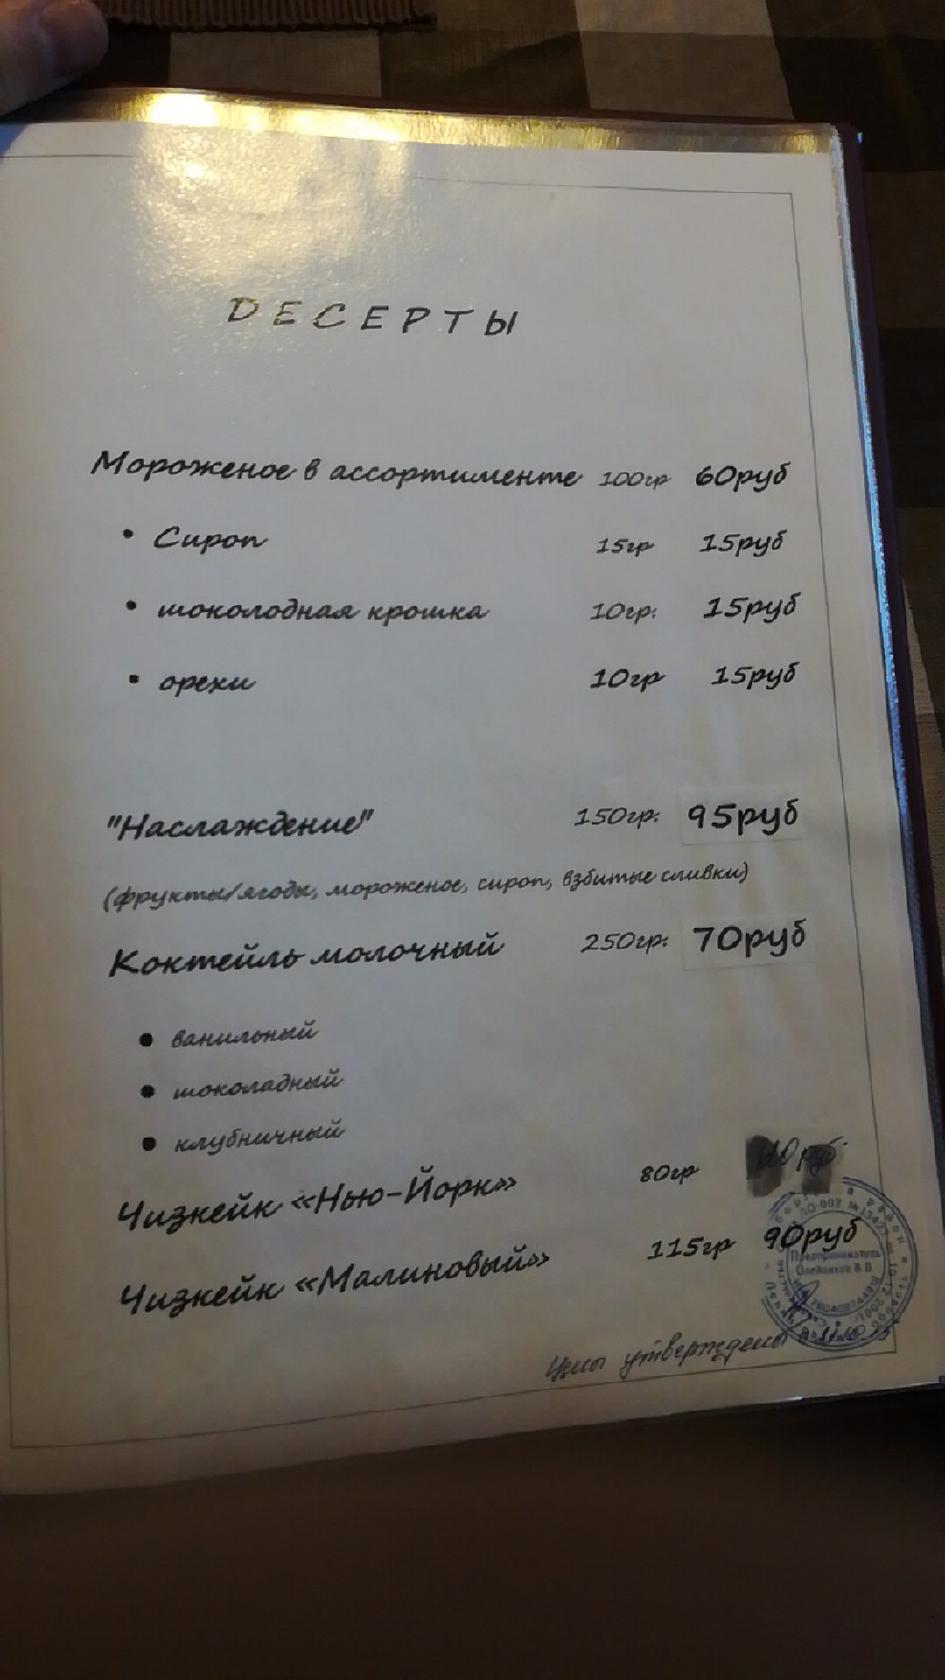 ДЕСЕРТЫ
Мороженое в ассортименте 100гр 60руб
• Сироп 15гр 15руб
• шоколодная крошка 10гр. 15руб
• орехи 10гр 15руб
"Наслаждение" 150гр. 95руб
(фрукты/ягоды, мороженое, сироп, взбитые сливки)
Коктейль молочный 250гр. 70руб
• ванильный
• шоколадный
• клубничный
Чизкейк «Нью-Йорк» 80гр руб.
Чизкейк «Малиновый» 115гр 90руб
Предприниматель
Цены утверждены